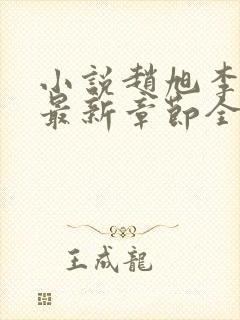 小説趙旭李
最新章節全
王成龍